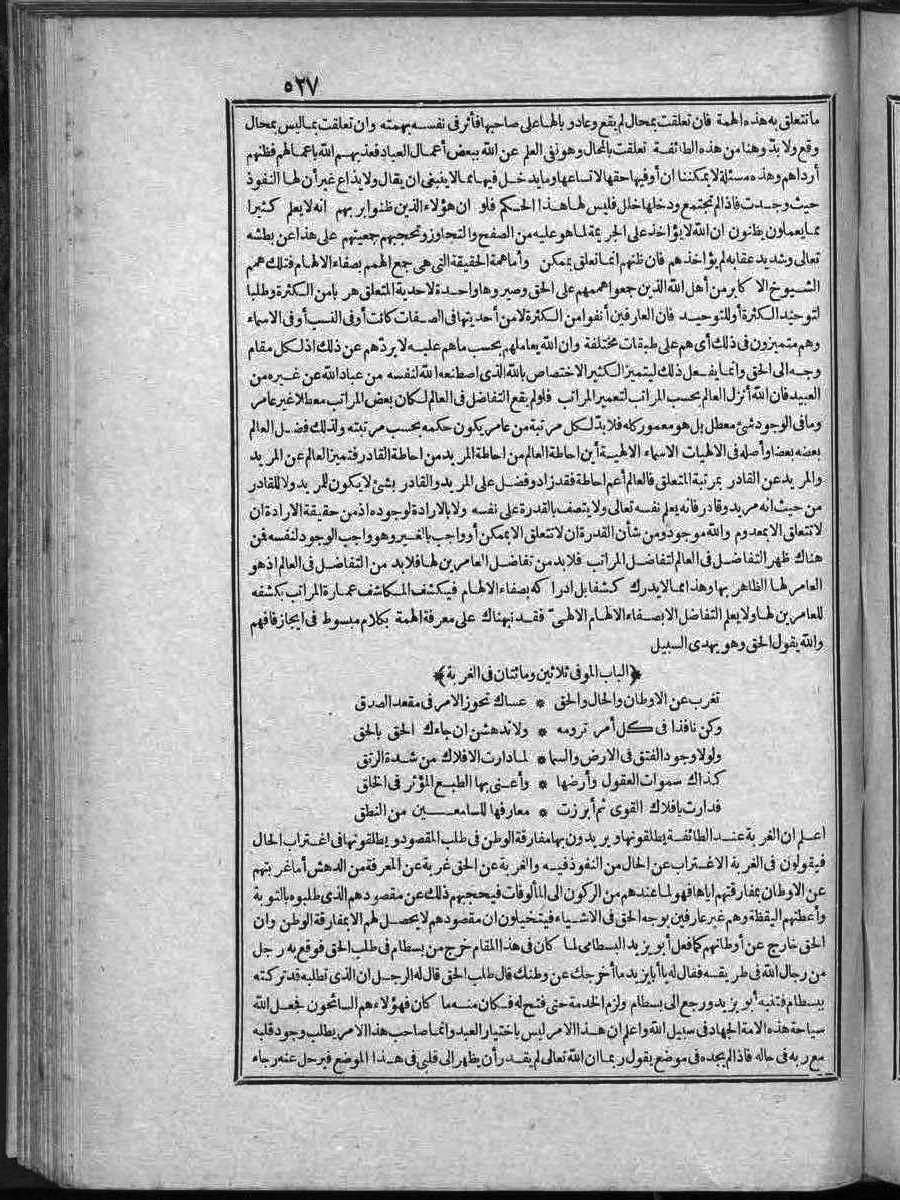 ٥٢٧
ما تتعلق به هذه الهمة فان تعلقت بمحال لم يقع وعاد وبالها على صاحبها فأثر في نفسه بهمته وان تعلقت بما ليس بمحال
وقع ولا بد وهنا من هذه الطائفة تعلقت بالمحال وهو نفى العلم عن الله ببعض أعمال العباد فعذبهم الله باعمالهم فظنهم
أرداهم وهذه مسئلة لا يمكننا ان أوفيها حقها لاتساعها وما يدخل فيها مما لا ينبغي ان يقال ولا يذاع غير أن لها النفوذ
حيث وجدت فاذا لم تجتمع ودخلها خلل فليس لها هذا الحكم فلو ان هؤلاء الذين ظنوا بربهم انه لا يعلم كثيرا
مما يعملون يظنون ان الله لا يؤاخذ على الجريمة لما هو عليه من الصفح والتجاوز وتحجبهم جمعيتهم على هذا عن بطشه
تعالى وشديد عقابه لم يؤاخذهم فان ظنهم انما تعلق بممكن وأما همة الحقيقة التي هي جمع الهمم بصفاء الالهام فتلك همم
الشيوخ الاكابر من أهل الله الذين جمعوا هممهم على الحق وصيروها واحدة لاحدية المتعلق هربا من الكثرة وطلبا
لتوحيد الكثرة أو للتوحيد فان العارفين أنفوا من الكثرة لا من أحديتها في الصفات كانت أو في النسب أو في الاسماء
وهم متميزون في ذلك أي هم على طبقات مختلفة وان الله يعاملهم بحسب ما هم عليه لا يردّهم عن ذلك اذ لكل مقام
وجه الى الحق وانما يفعل ذلك ليتميز الكثير الاختصاص بالله الذي اصطنعه الله لنفسه من عباد الله عن غيره من
العبيد فان الله أنزل العالم بحسب المراتب لتعمير المراتب فلو لم يقع التفاضل في العالم لكان بعض المراتب معطلا غير عامر
وما في الوجود شئ معطل بل هو معمور كله فلا بدّ لكل مرتبة من عامر يكون حكمه بحسب مرتبته ولذلك فضل العالم
بعضه بعضا وأصله في الالهيات الاسماء الالهية أين احاطة العالم من احاطة المريد من احاطة القادر فتميز العالم عن المريد
والمريد عن القادر بمرتبة المتعلق فالعالم أعم احاطة فقد زاد وفضل على المريد والقادر بشئ لا يكون للمريد ولا للقادر
من حيث انه مريد وقادر فانه يعلم نفسه تعالى ولا يتصف بالقدرة على نفسه ولا بالارادة لوجوده اذ من حقيقة الارادة ان
لا تتعلق الا بمعدوم والله موجود ومن شأن القدرة ان لا تتعلق الا بممكن أو واجب بالغير وهو واجب الوجود لنفسه فمن
هناك ظهر التفاضل في العالم لتفاضل المراتب فلا بد من تفاضل العامرين لها فلا بد من التفاضل في العالم اذ هو
العامر لها الظاهر بها وهذا مما لا يدرك كشفا بل ادراكه بصفاء الالهام فيكشف المكاشف عمارة المراتب بكشفه
للعامرين لها ولا يعلم التفاضل الا بصفاء الالهام الالهيّ فقد نبهناك على معرفة الهمة بكلام مبسوط في ايجاز فافهم
والله يقول الحق وهو يهدي السبيل
﴿الباب الموفي ثلاثين ومائتان في الغربة﴾
تغرب عن الاوطان والحال والحق * عساك تحوز الامر في مقعد الصدق
وكن نافذا في كل أمر ترومه * ولا تدهشن ان جاءك الحق بالحق
ولولا وجود الفتق في الارض والسما * لما دارت الافلاك من شدة الرتق
كذاك سموات العقول وأرضها * وأعني بها الطبع المؤثر في الخلق
فدارت بافلاك القوى ثم أبرزت * معارفها للسامعين من النطق
اعلم ان الغربة عند الطائفة يطلقونها ويريدون بها مفارقة الوطن في طلب المقصود ويطلقونها في اغتراب الحال
فيقولون في الغربة الاغتراب عن الحال من النفوذ فيه والغربة عن الحق غربة عن المعرفة من الدهش أما غربتهم
عن الاوطان بمفارقتهم اياها فهو لما عندهم من الركون الى المألوفات فيحجبهم ذلك عن مقصودهم الذي طلبوه بالتوبة
وأعطتهم اليقظة وهم غير عارفين بوجه الحق في الاشياء فيتخيلون ان مقصودهم لا يحصل لهم الا بمفارقة الوطن وان
الحق خارج عن أوطانهم كما فعل أبو يزيد البسطامي لما كان في هذا المقام خرج من بسطام في طلب الحق فوقع به رجل
من رجال الله في طريقه فقال له يا أبا يزيد ما أخرجك عن وطنك قال طلب الحق قال له الرجل ان الذي تطلبه قد تركته
ببسطام فتنبه أبو يزيد ورجع الى بسطام ولزم الخدمة حتى فتح له فكان منه ما كان فهؤلاء هم السائحون فجعل الله
سياحة هذه الامة الجهاد في سبيل الله واعلم ان هذا الامر ليس باختيار العبد وانما صاحب هذا الامر يطلب وجود قلبه
مع ربه في حاله فاذا لم يجده في موضع يقول ربما ان الله تعالى لم يقدر أن يظهر الى قلبي في هذا الموضع فيرحل عنه رجاء